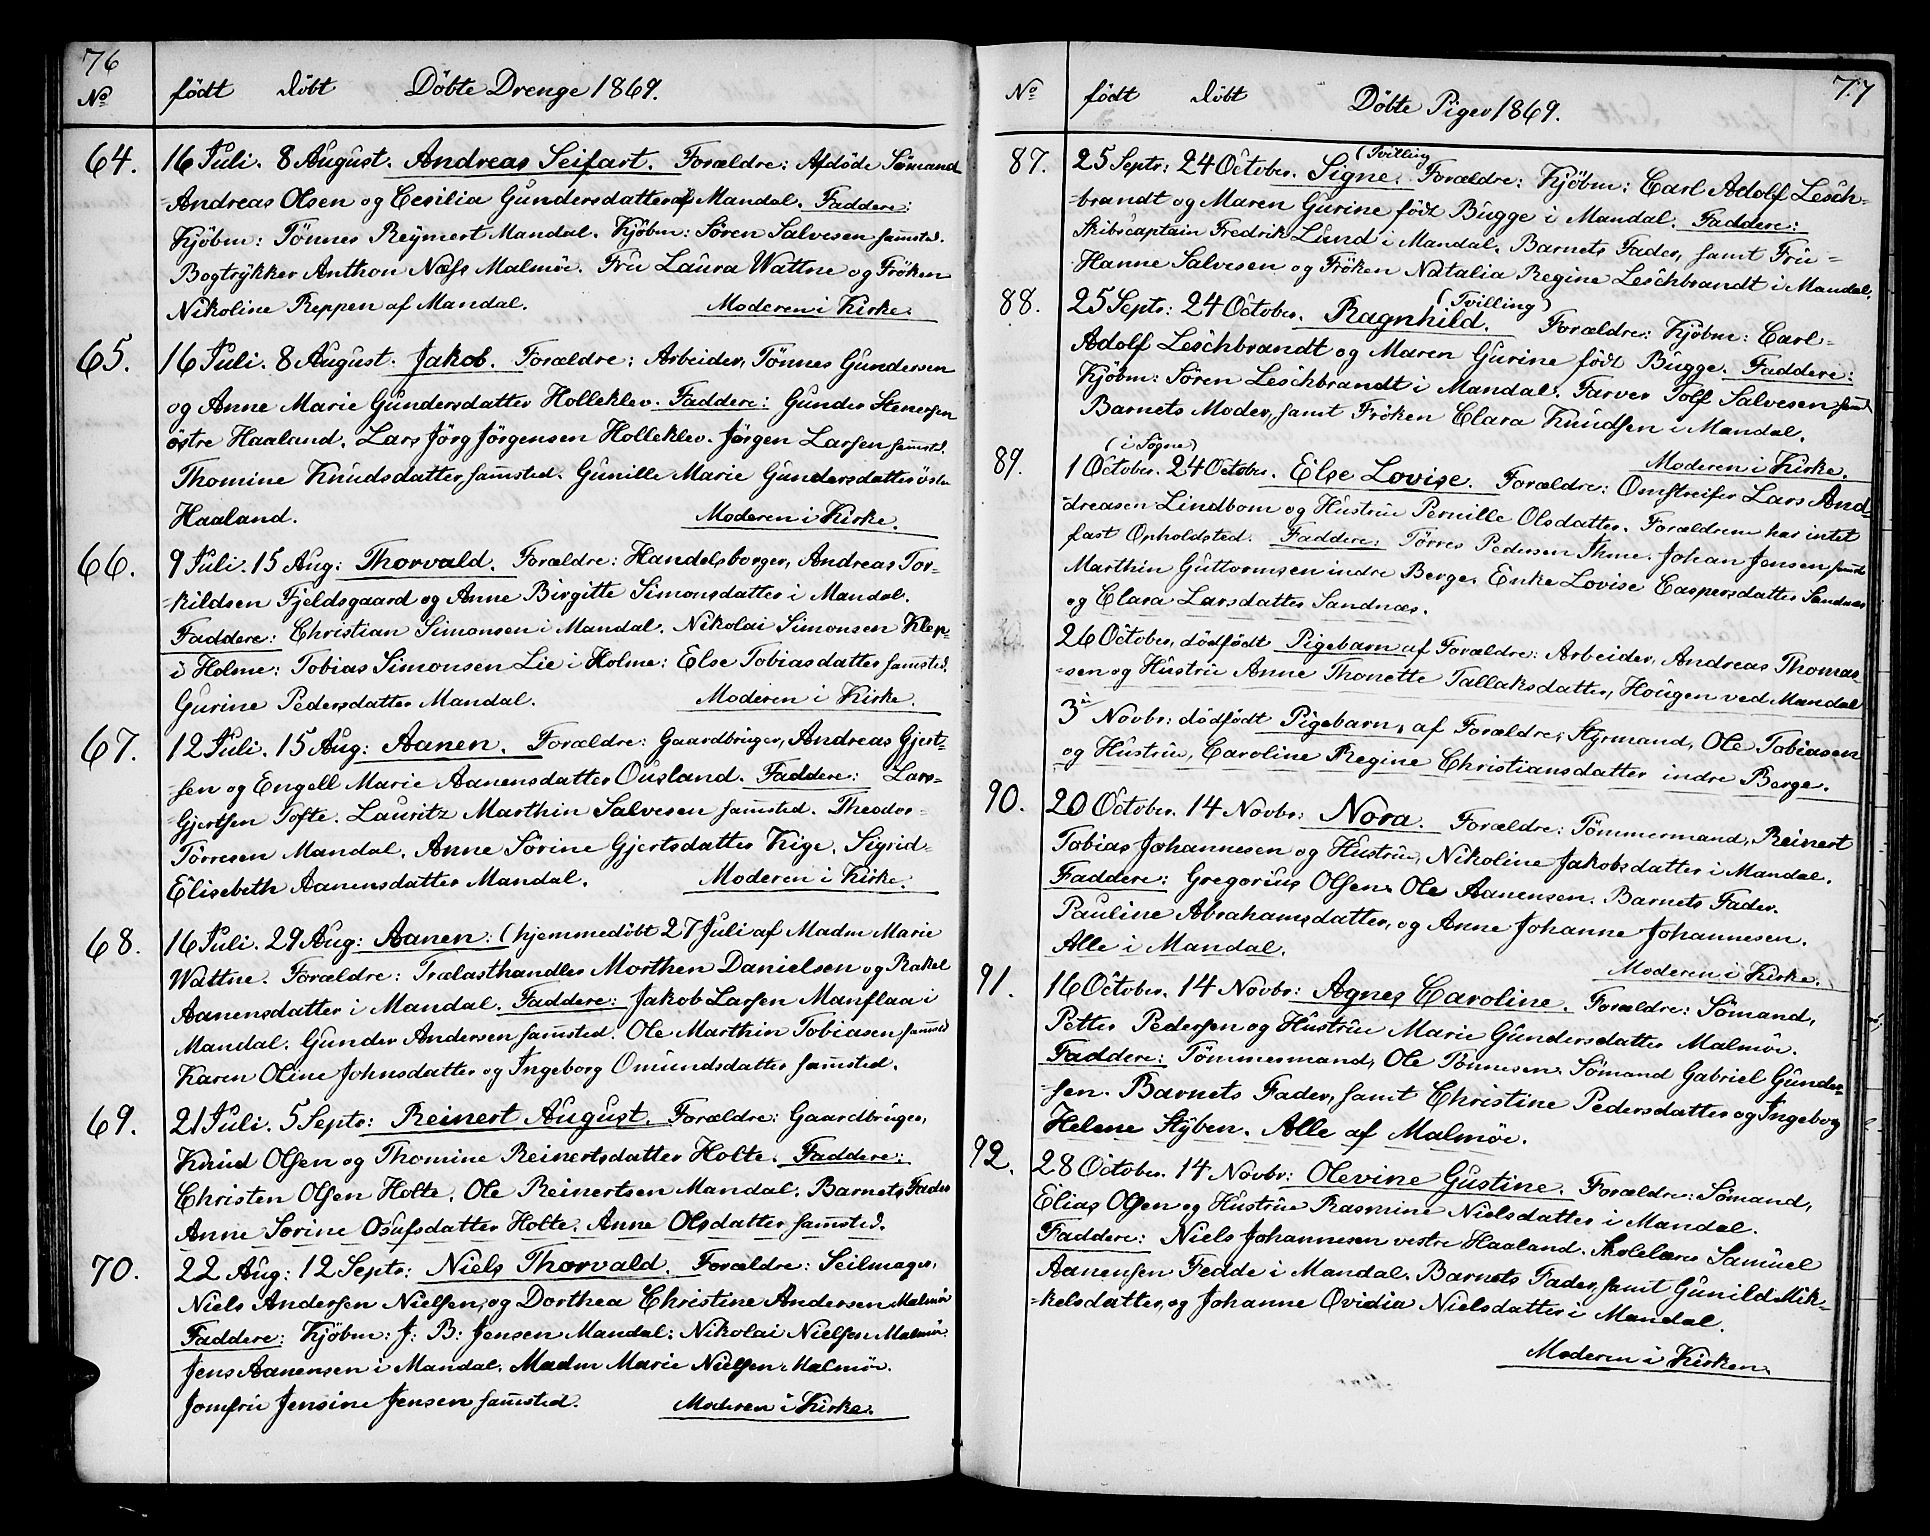 76
No födt döbt Döbte Drenge 1869.
64. 16 Juli. 8 August. Andreas Seifart. Forældre: Afdöde Sömand
Andreas Olsen og Cesilia Gundersdatter af Mandal. Faddere:
Kjöbm: Tönnes Reymert Mandal. Kjöbm: Sören Salvesen samsted.
Bogtrykker Anthon Næss Malmöe. Frü Laura Wattne og Fröken
Nikoline Reppen af Mandal. Moderen i Kirke.
65. 16 Juli. 8 August. Jakob. Forældre: Arbeider, Tönnes Gundersen
og Anne Marie Gundersdatter Holleklev. Faddere: Gunder Stenersen
östre Haaland. Lars Jörg Jörgensen Holleklev. Jörgen Larsen samsted.
Thomine Knudsdatter samsted. Gunille Marie Gundersdatter östre
Haaland. Moderen i Kirke.
66. 9 Juli. 15 Aug: Thorvald. Forældre: Handelsborger, Andreas Tor-
kildsen Fjeldsgaard og Anne Birgitte Simonsdatter i Mandal.
Faddere: Christian Simonsen i Mandal. Nikolai Simonsen Klep-
i Holme: Tobias Simonsen Lie i Holme: Else Tobiasdatter samsted.
Gurine Pedersdatter Mandal. Moderen i Kirke.
67. 12 Juli. 15 Aug: Aanen. Forældre: Gaardbruger, Andreas Gjert-
sen og Engell Marie Aanensdatter Ousland. Faddere: Lars-
Gjertsen Tofte. Lauritz Marthin Salvesen samsted. Theodor-
Törresen Mandal. Anne Sörine Gjertsdatter Kige. Sigrid-
Elisebeth Aanensdatter Mandal. Moderen i Kirke.
68. 16 Juli. 29 Aug: Aanen: (hjemmedöbt 27 Juli af Madm Marie
Wattne. Forældre: Trælasthandler Morthen Danielsen og Rakel
Aanensdatter i Mandal. Faddere: Jakob Larsen Manflaa i
Mandal. Gunder Andersen samsted. Ole Marthin Tobiasen samsted
Karen Oline Johnsdatter og Ingeborg Omundsdatter samsted.
69. 21 Juli. 5 Septr: Reinert August. Forældre: Gaardbruger,
Knud Olsen og Thomine Reinertsdatter Holte. Faddere:
Christen Olsen Holte. Ole Reinertsen Mandal. Barnets Fader
Anne Sorine Osufsdatter Holte. Anne Olsdatter samsted.
70. 22 Aug: 12 Septr: Niels Thorvald. Forældre: Seilmager,
Niels Andersen Nielsen, og Dorthea Christine Andersen Malmöe
Faddere: Kjöbm: J: B: Jensen Mandal: Nikolai Nielsen Malmöe
Jens Aanensen i Mandal. Madm Marie Nielsen Malmöe.
Jomfrü Jensine Jensen samsted. Moderen i Kirke.
77
No födt döbt Döbte Piger 1869.
(Tvilling
87. 25 Septr: 24 October. Signe. Forældre: Kjöbm: Carl Adolf Lesch-
brandt og Maren Gurine födt Bugge i Mandal. Faddere:
Skibscaptain Fredrik Lund i Mandal. Barnets Fader, samt Frü-
Hanne Salvesen og Fröken Natalia Regine Leschbrandt i Mandal.
(Tvilling)
88. 25 Septr: 24 October. Ragnhild. Forældre: Kjöbm: Carl-
Adolf Leschbrandt og Maren Gurine födt Bugge. Faddere:
Kjöbm: Sören Leschbrandt i Mandal. Farver Tolf Salvesen samsd
Barnets Moder, samt Fröken Clara Knudsen i Mandal.
(i Sogne) Moderen i Kirke.
89. 1 October. 24 October. Else Lovise. Forældre: Omstreifer Lars And-
dreasen Lindbom og Hustrü Pernille Olsdatter. Forældrene har intet
fast Opholdsted. Faddere: Törres Pedersen Ihme. Johan Jensen samsd
Marthin Guttormsen indre Berge, Enke Lovise Caspersdatter Sandnæs
og Clara Larsdatter Sandnæs.
26 October, dödfödt Pigebarn af Forældre: Arbeider, Andreas Thomas-
sen og Hustrü Anne Thonette Tallaksdatter, Hougen ved Mandal
3die Novbr: dödfödt Pigebarn, af Forældre, Styrmand, Ole Tobiasen
og Hustrü, Caroline Regine Christiansdatter indre Berge.
90. 20 October. 14 Novbr: Nora. Forældre: Tömmermand, Reinert
Tobias Johannesen og Hustrü, Nikoline Jakobsdatter i Mandal.
Faddere: Gregorius Olsen. Ole Aanensen. Barnets Fader.
Pauline Abrahamsdatter, og Anne Johanne Johannesen.
Alle i Mandal. Moderen i Kirke.
91. 16 October. 14 Novbr: Agnes Caroline. Forældre: Sömand,
Petter Pedersen og Hustrü Marie Gundersdatter Malmöe.
Faddere: Tömmermand, Ole Tönnesen. Sömand Gabriel Gunder-
sen. Barnets Fader, samt Christine Pedersdatter og Ingeborg
Helene Styben. Alle af Malmöe.
92. 28 October. 14 Novbr: Olevine Gustine. Forældre: Sömand,
Elias Olsen og Hustrü Rasmine Nielsdatter i Mandal.
Faddere: Niels Johannesen vestre Haaland. Skolelærer Samuel
Aanensen Fedde i Mandal. Barnets Fader, samt Gunild Mik-
kelsdatter, og Johanne Ovidia Nielsdatter i Mandal.
Moderen i Kirken.